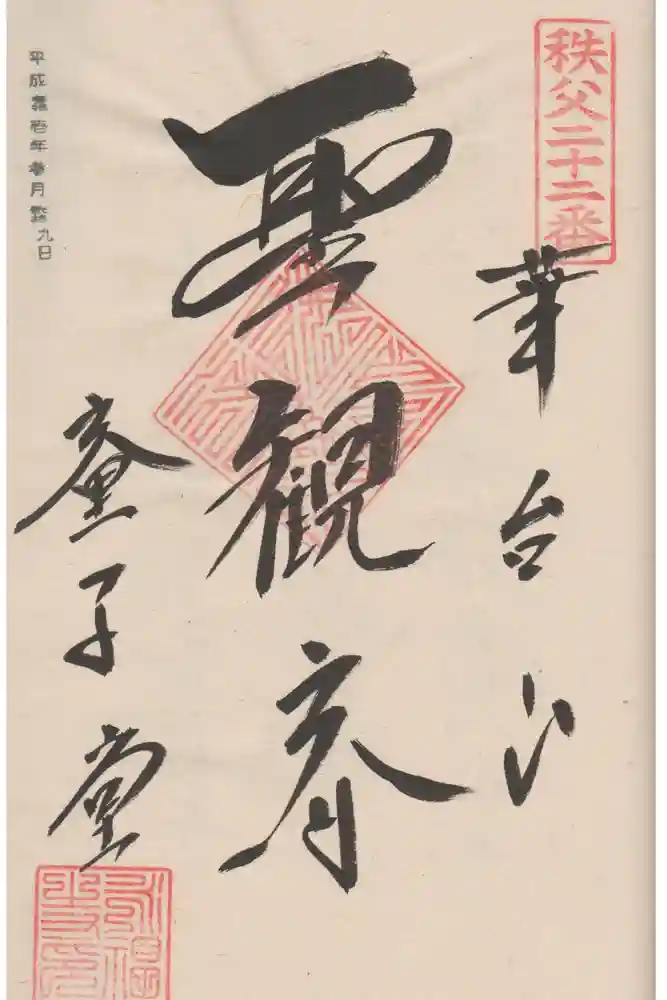 秩父二十二番
華台山
聖観音
童子堂
平成 年 月 九日
永福寺印